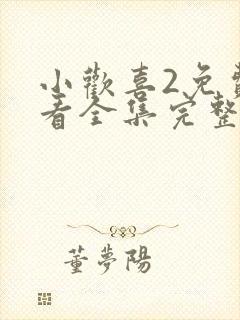 小歡喜2免費
看全集完整
董夢陽